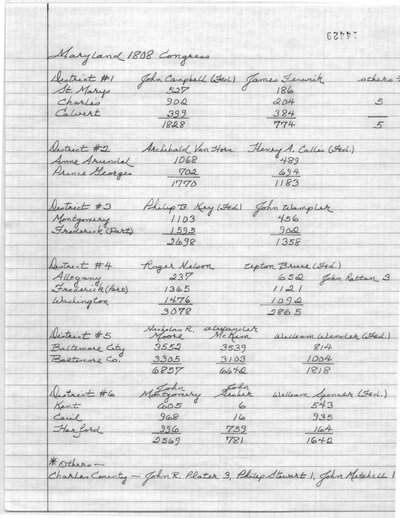 14429
Maryland 1808 Congress
District #1 John Campbell (Fed) James Fenwick others*
St. Marys 527 186
Charles 902 204 5
Calvert 399 384
1828 774 5
District #2 Archibald Van Horn Henry A. Callis (Fed)
Anne Arundel 1068 489
Prince Georges 702 694
1770 1183
District #3 Philip B. Key (Fed) John Wampler
Montgomery 1103 456
Frederick (Part) 1595 902
2698 1358
District #4 Roger Nelson Upton Bruce (Fed)
Allegany 237 652 John Rattan 3
Frederick (Part) 1365 1121
Washington 1476 1092
3078 2865
District #5 Nicholas R. Moore Alexander McKim William Winder (Fed.)
Baltimore City 3552 3539 814
Baltimore Co. 3305 3103 1004
6857 6642 1818
District #6 John Montgomery John William Spencer (Fed.)
Kent 605 6 543
Cecil 968 16 935
Harford 996 759 164
2569 781 1642
* Others —
Charles County — John R. Plater 3, Philip Stewart 1, John Mitchell 1